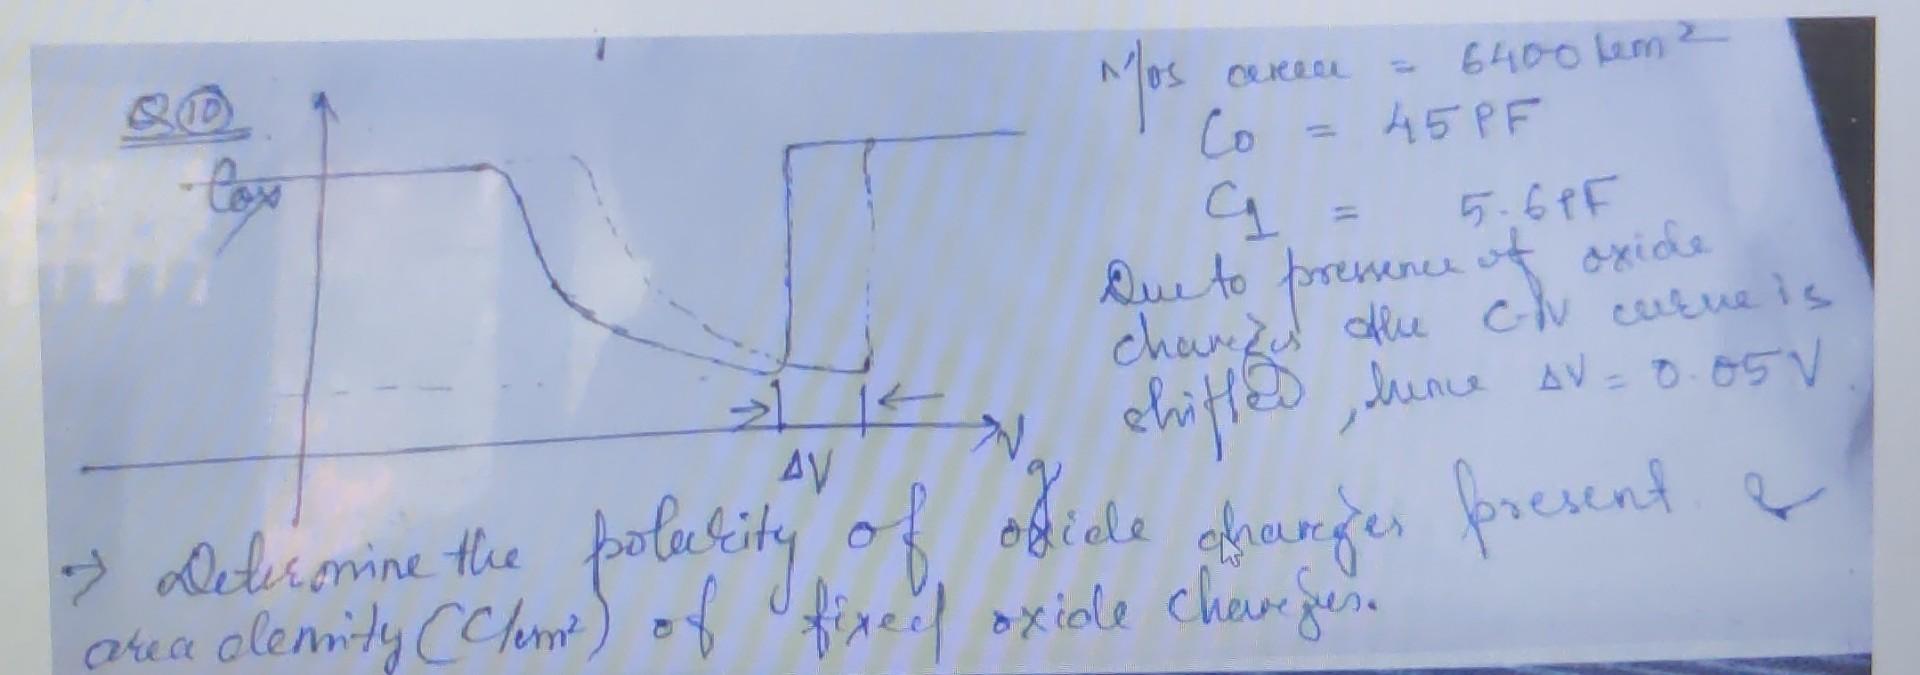 Q⑩
Cox
ΔV
Vg
Mos area = 6400 µm²
C0 = 45 PF
C1 = 5.6 PF
Due to presence of oxide
charges the C-V curve is
shifted, hence ΔV = 0.05 V.
→ Determine the polarity of oxide charges present &
area density (C/cm²) of fixed oxide charges.